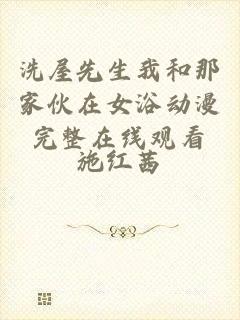 洗屋先生我和那
家伙在女浴动漫
完整在线观看
施红茜